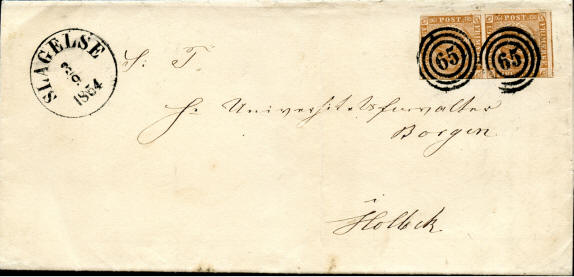 SLAGELSE
3/9
1864
S: T
POST
POST
65
65
Hr Universitetsforvalter
Borgen
i
Holbek.